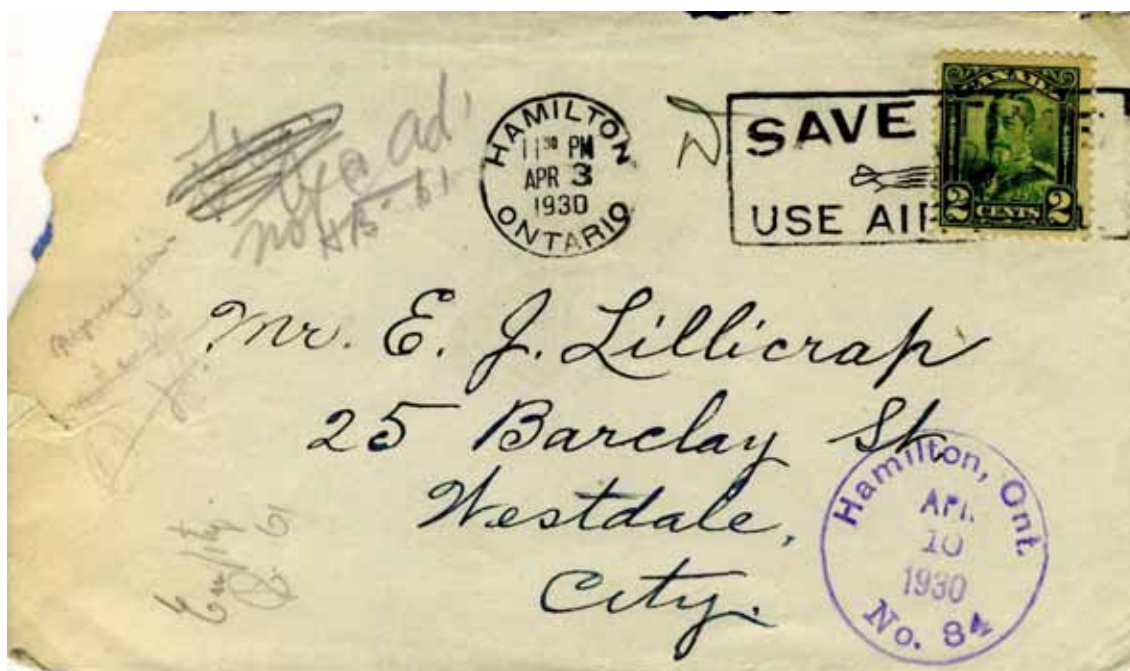 HAMILTON
11 30 PM
APR 3
1930
ONTARIO
SAVE
USE AIR
CANADA
2 CENTS 2
ad.
not
Mr. E. J. Lillicrap
25 Barclay St
Westdale,
City.
Hamilton, Ont.
APR
10
1930
No. 84